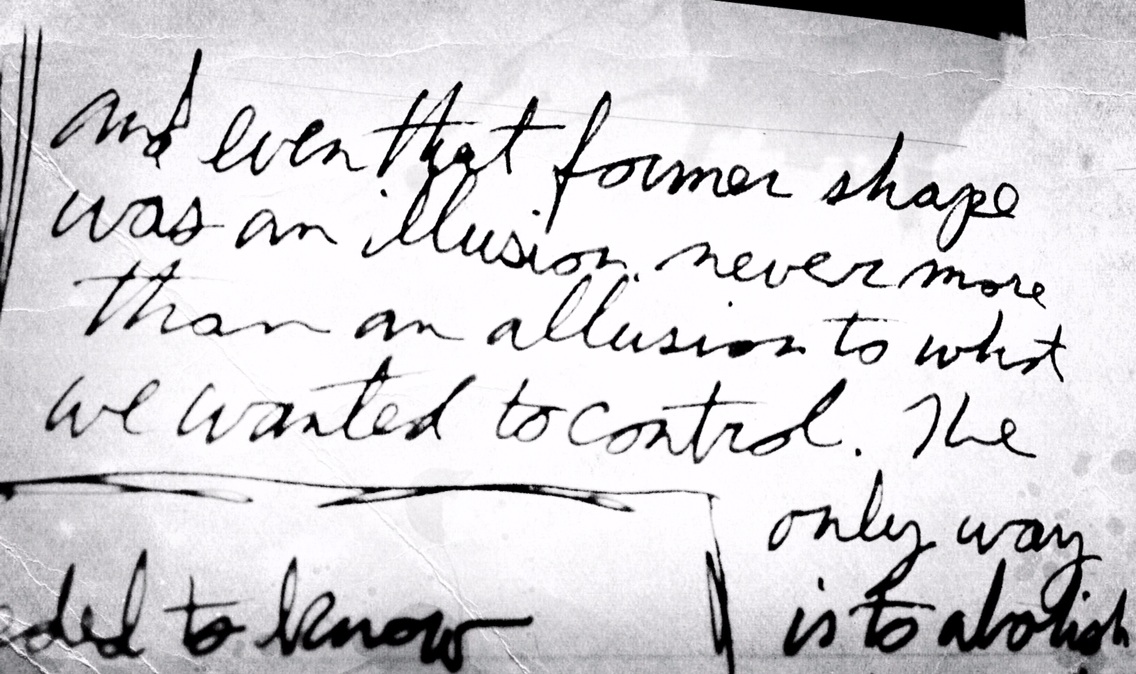 and even that former shape
was an illusion, never more
than an allusion to what
we wanted to control. The
only way
is to abolish
ded to know